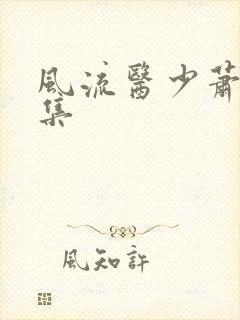 風流醫少蕭
集
風知許